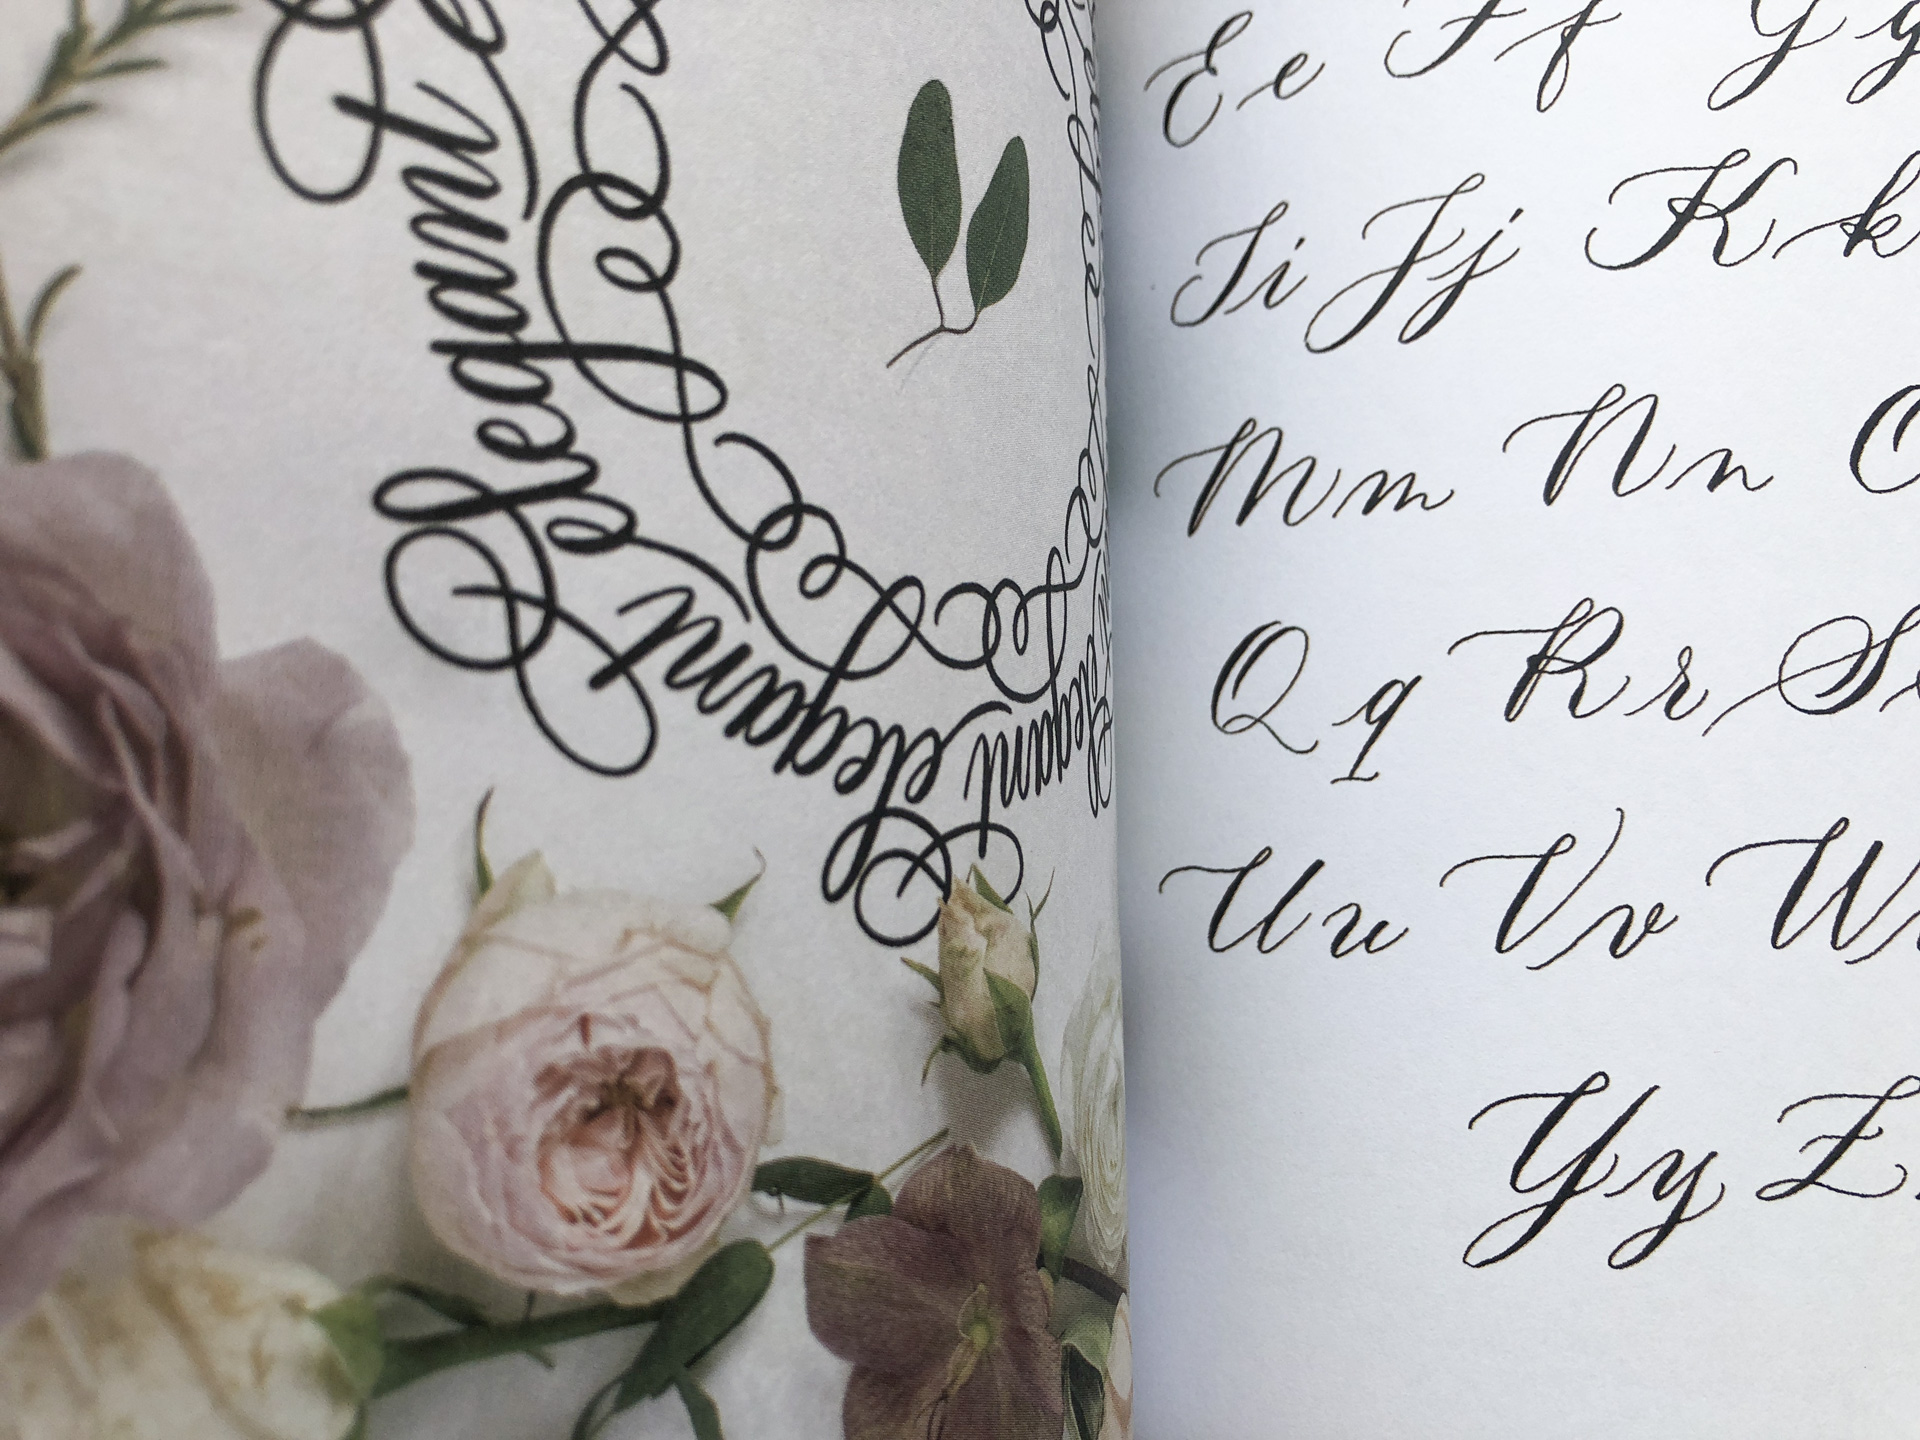 elegant
elegant
elegant
elegant
Ee Ff Gg
Ii Jj Kk
Mm Nn O
Qq Rr Ss
Uu Vv W
Yy Z